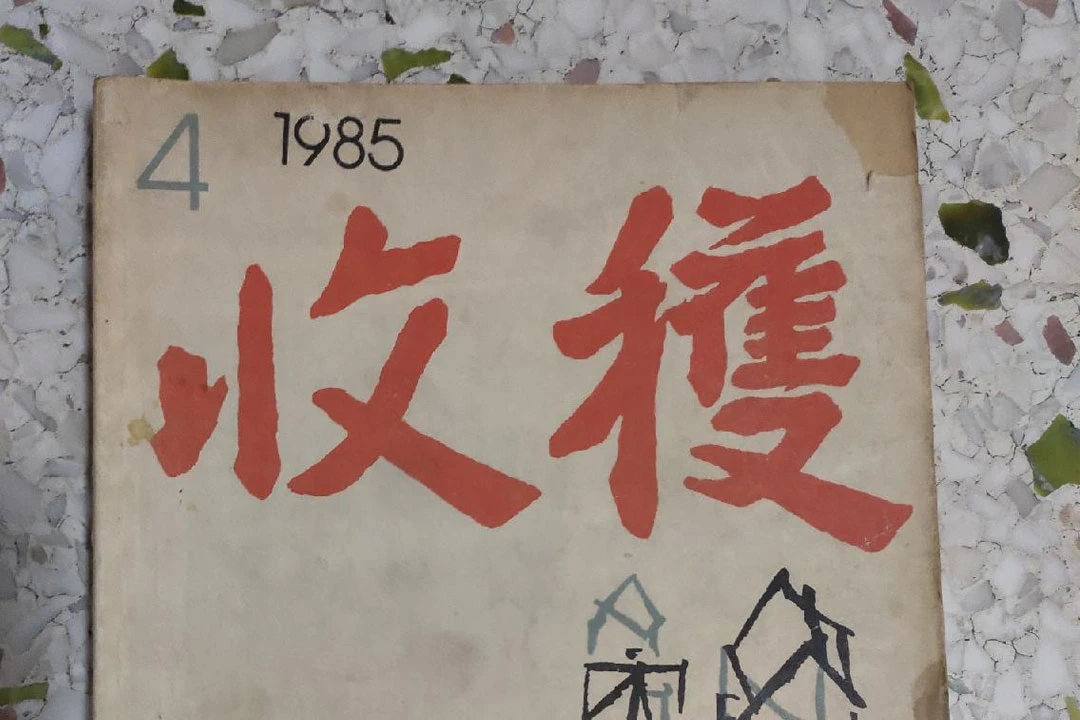 4 1985
收穫